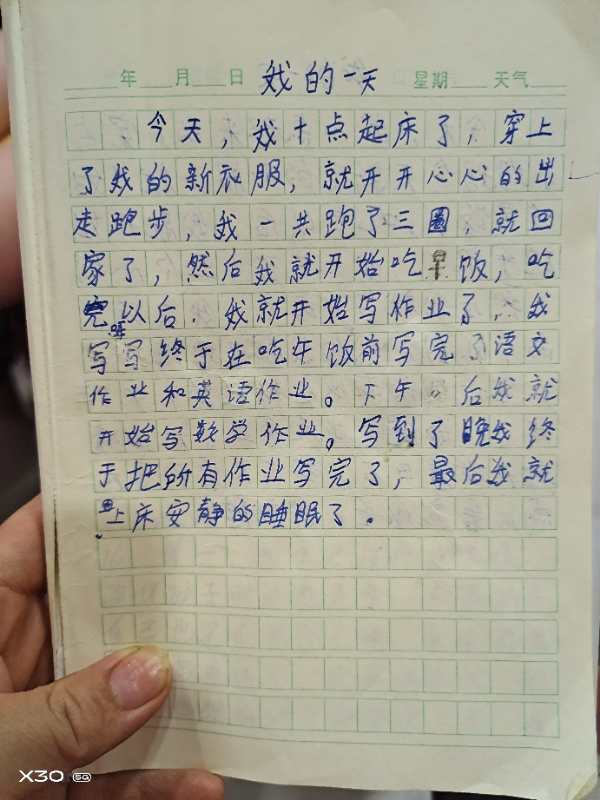 ____年____月____日 我的一天 星期____天气____
今天，我十点起床了，穿上
了我的新衣服，就开开心心的出
走跑步，我一共跑了三圈，就回
家了，然后我就开始吃早饭，吃
完以后．我就开始写作业了．我
写写终于在吃午饭前写完了语文
作业和英语作业。下午 后我就
开始写数学作业。写到了晚我终
于把所有作业写完了，最后我就
上床安静的睡眠了．
X30 5G